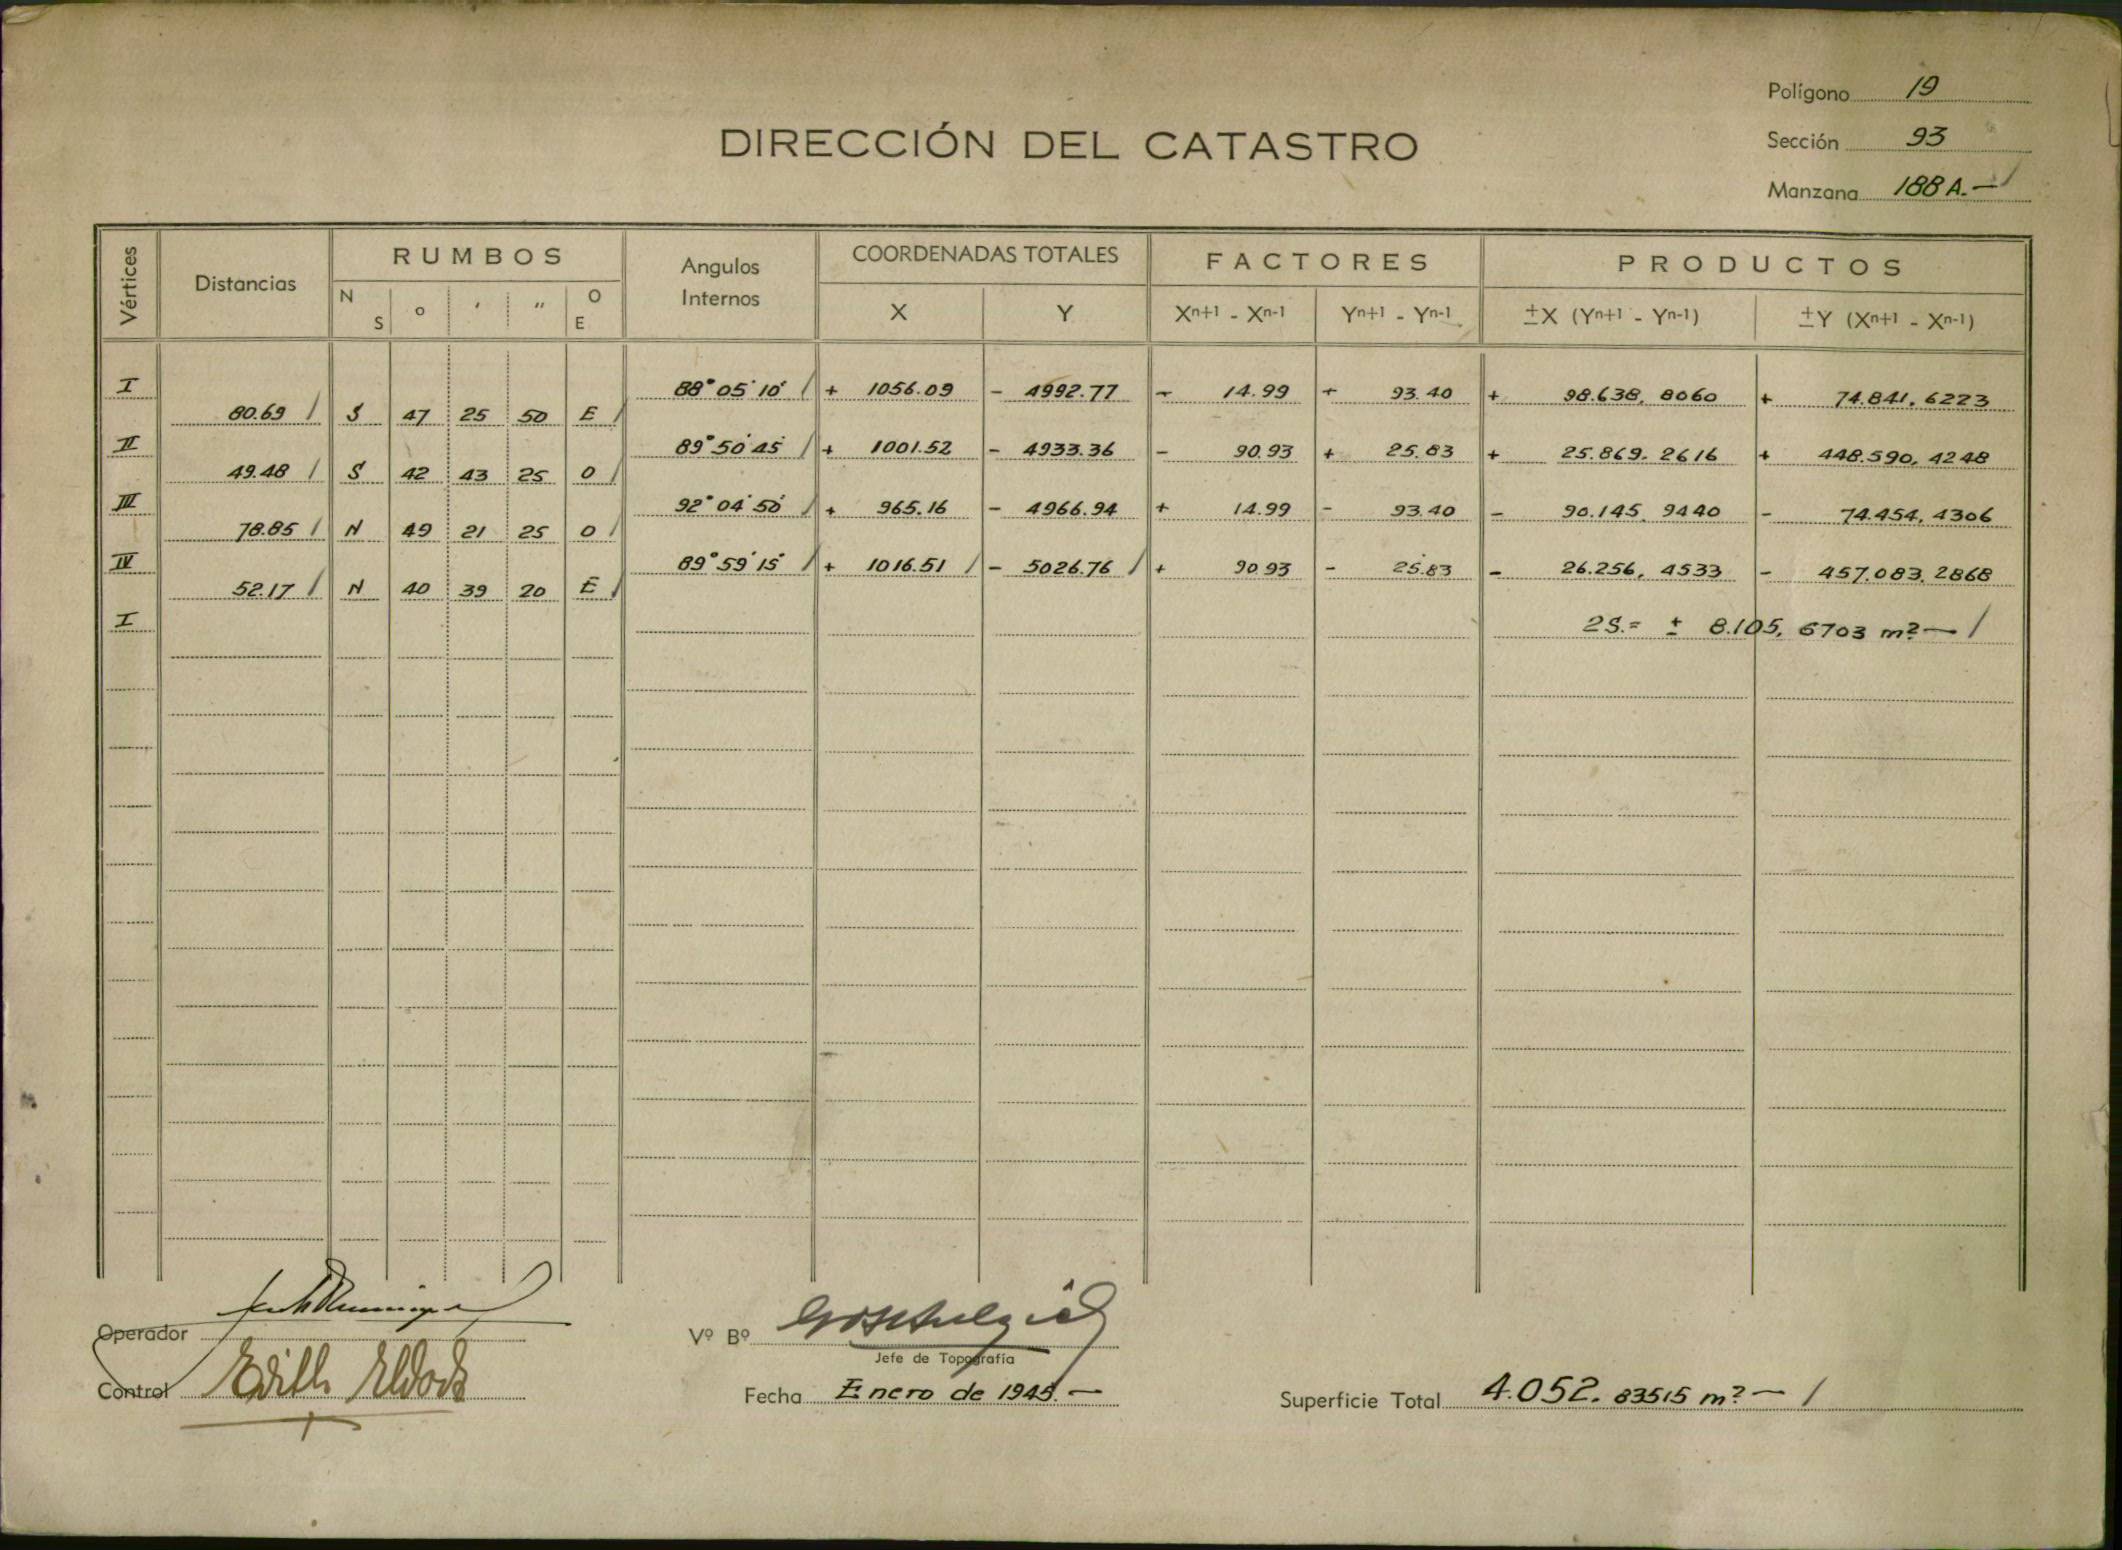 Polígono 19
DIRECCIÓN DEL CATASTRO
Sección 93
Manzana 188 A.—
Vértices Distancias RUMBOS Angulos Internos COORDENADAS TOTALES FACTORES PRODUCTOS
N S ° ' " O E X Y Xn+1 - Xn-1 Yn+1 - Yn-1 ±X (Yn+1 - Yn-1) ±Y (Xn+1 - Xn-1)
I 88° 05' 10" + 1056.09 - 4992.77 - 14.99 + 93.40 + 98.638, 8060 + 74.841, 6223
80.69 S 47 25 50 E
II 89° 50' 45" + 1001.52 - 4933.36 - 90.93 + 25.83 + 25.869. 2616 + 448.590, 4248
49.48 S 42 43 25 O
III 92° 04' 50" + 965.16 - 4966.94 + 14.99 - 93.40 - 90.145, 9440 - 74.454, 4306
78.85 N 49 21 25 O
IV 89° 59' 15" + 1016.51 - 5026.76 + 90.93 - 25.83 - 26.256, 4533 - 457.083, 2868
52.17 N 40 39 20 E
I 2S.= ± 8.105, 6703 m²—
Operador
Vº Bº
Jefe de Topografía
Control
Fecha Enero de 1945.—
Superficie Total 4.052. 83515 m²—